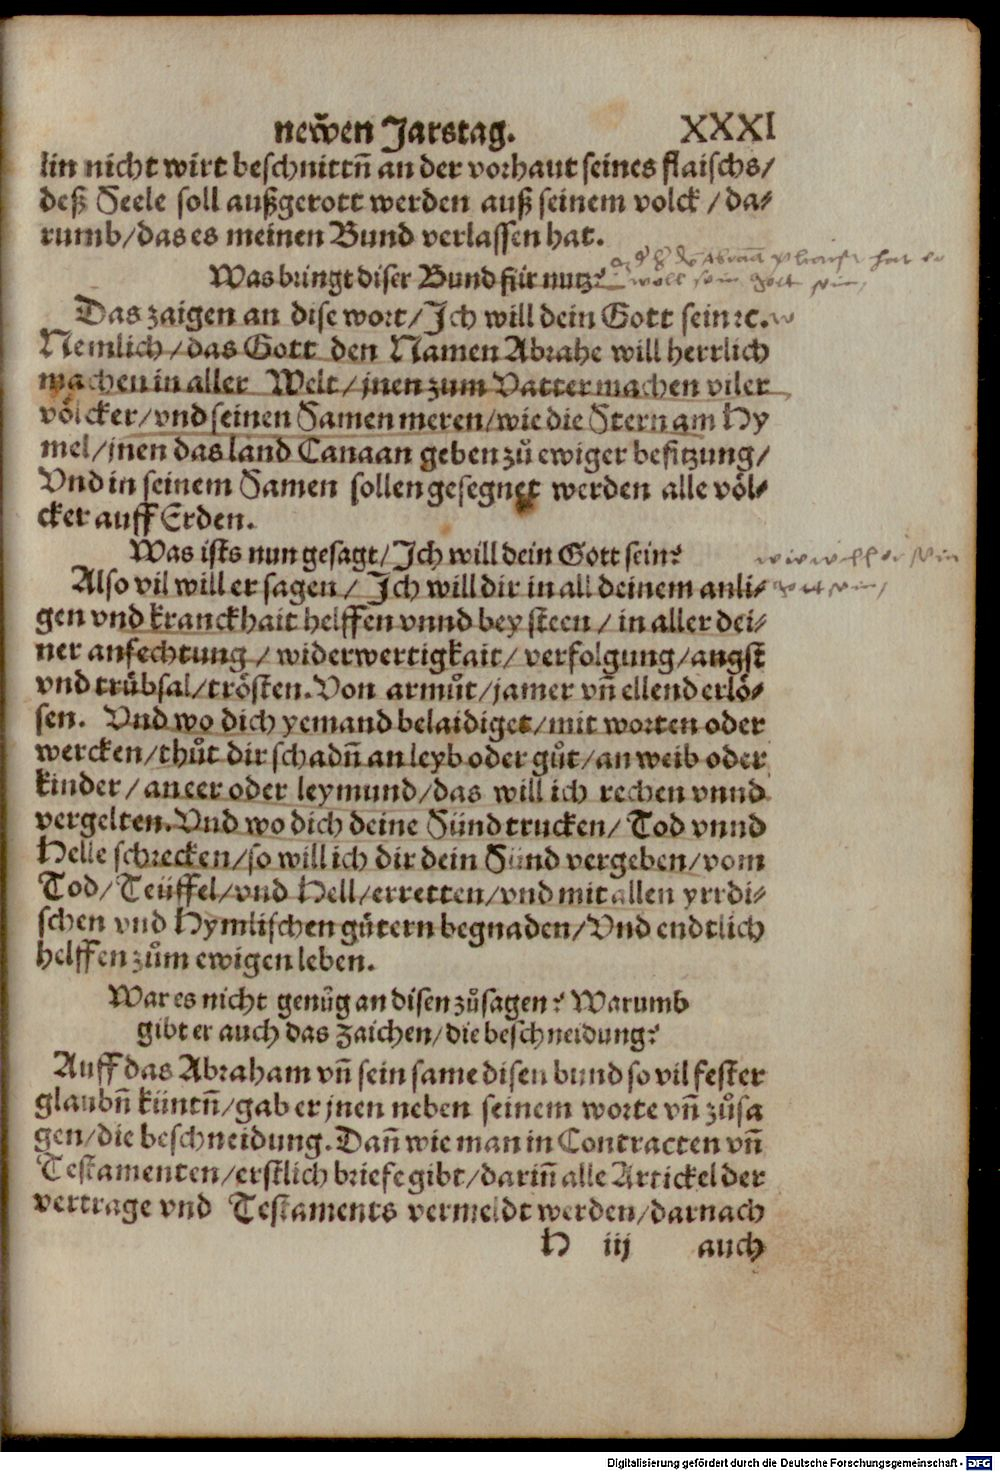 newen Jarstag. XXXI
lin nicht wirt beschnittñ an der vorhaut seines flaischs/
deß Seele soll außgerott werden auß seinem volck / da⸗
rumb/das es meinen Bund verlassen hat.
Was bringt diser Bund für nutz?
Das zaigen an dise wort/Ich will dein Gott sein ꝛc.
Nemlich/das Gott den Namen Abrahe will herrlich
machen in aller Welt/jnen zum Vatter machen viler
völcker/vnd seinen Samen meren/wie die Stern am Hy
mel/jnen das land Canaan geben zů ewiger besitzung/
Vnd in seinem Samen sollen gesegnet werden alle völ⸗
cker auff Erden.
Was ists nun gesagt/Ich will dein Gott sein?
Also vil will er sagen/ Ich will dir in all deinem anli⸗
gen vnd kranckhait helffen vnnd bey steen / in aller dei⸗
ner anfechtung / widerwertigkait/ verfolgung/angst
vnd trübsal/trösten. Von armůt/jamer vñ ellend erlö⸗
sen. Vnd wo dich yemand belaidiget/mit worten oder
wercken/thůt dir schadñ an leyb oder gůt/an weib oder
kinder/an eer oder leymund/das will ich rechen vnnd
vergelten. Vnd wo dich deine Sünd trucken/ Tod vnnd
Helle schrecken/so will ich dir dein Sünd vergeben/vom
Tod/Teüffel/vnd Hell/erretten/vnd mit allen yrrdi⸗
schen vnd Hymlischen gütern begnaden/Vnd endtlich
helffen zům ewigen leben.
War es nicht genůg an disen zůsagen? Warumb
gibt er auch das Zaichen/die beschneidung?
Auff das Abraham vñ sein same disen bund so vil fester
glaubñ küntñ/gab er jnen neben seinem worte vñ zůsa
gen/die beschneidung. Dañ wie man in Contracten vñ
Testamenten/erstlich briefe gibt/dariñ alle Artickel der
vertrage vnd Testaments vermeldt werden/darnach
H iij auch
Digitalisierung gefördert durch die Deutsche Forschungsgemeinschaft - DFG